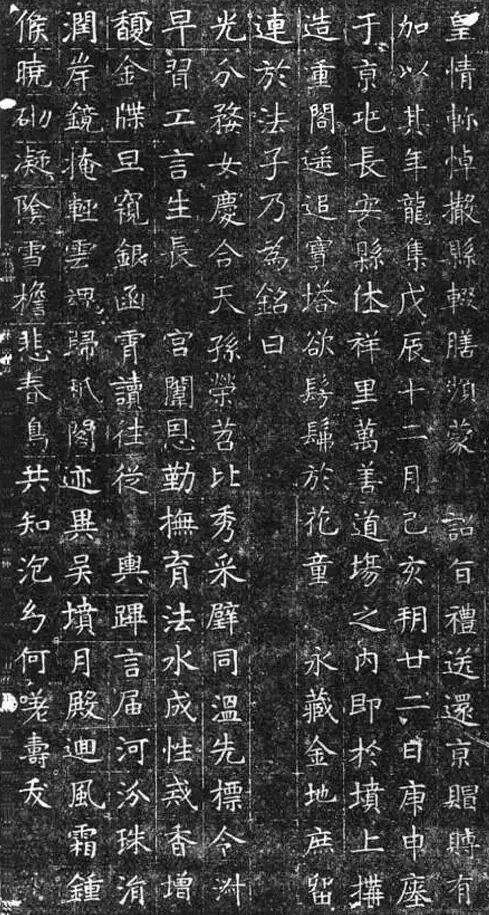 皇情軫悼撤縣輟膳頻蒙 詔旨禮送還京賵賻有
加以其年龍集戊辰十二月己亥朔廿二日庚申瘞
于京兆長安縣休祥里萬善道場之內即於墳上構
造重閣遥追寶塔欲髣髴於花童 永藏金地庶留
連於法子乃為銘曰
光分婺女慶合天孫榮苕比秀采璧同溫先標令淑
早習工言生長 宮闈恩勤撫育法水成性戒香增
馥金牒旦窺銀函宵讀往從 輿蹕言届河汾珠涓
潤岸鏡掩輕雲魂歸爪閣迹異吴墳月殿迴風霜鍾
候曉砌凝陰雪檐悲春鳥共知泡幻何嗟壽夭